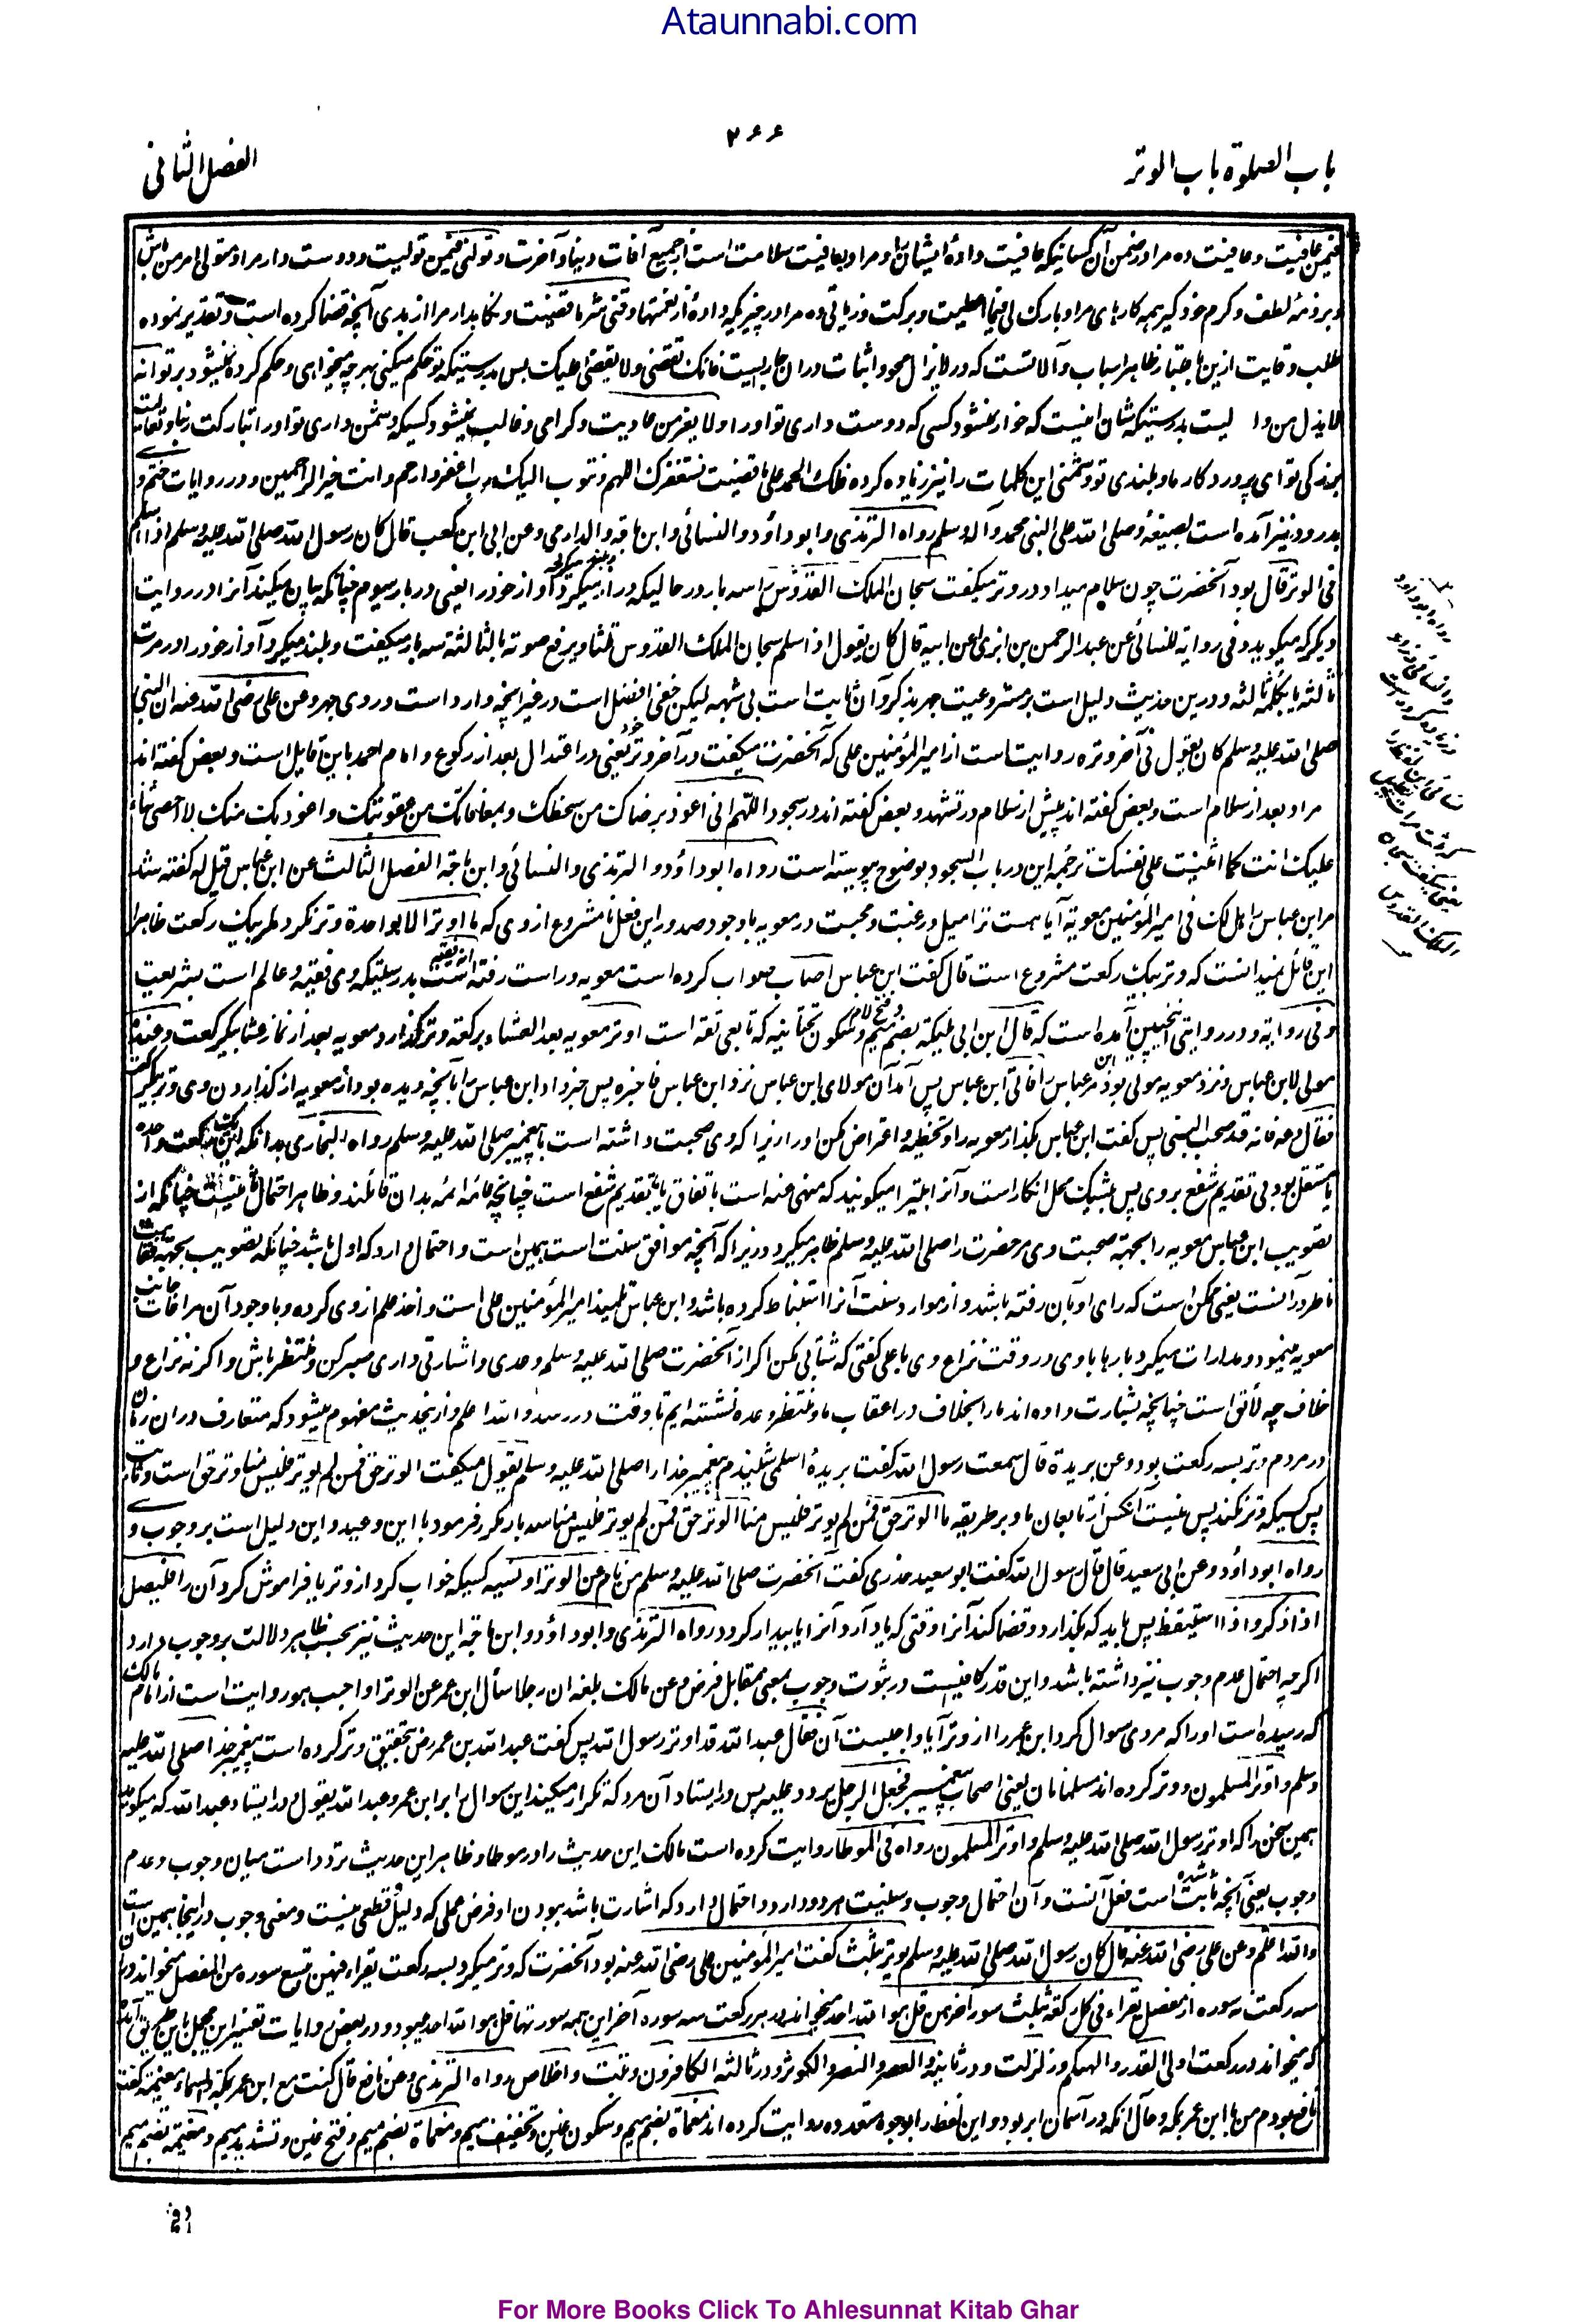 Ataunnabi.com
باب الصلوة باب الوتر
۲۶۶
الفصل الثانی
فیمن عافیت و عافیت ده مرا در ضمن آن کسانیکه عافیت دادهٔ ایشان را و مراد بعافیت سلامت است از جمیع آفات دنیا و آخرت و تولنی فیمن تولیت و دوست دار مرا و متولی امر من باش
و بر ذمهٔ لطف و کرم خود گیر همه کارهای مرا و بارک لی فیما اعطیت و برکت و زیاتی ده مرا در چیزیکه دادهٔ از نعمتها و قنی شر ما قضیت و نگاهدار مرا از بدی آنچه قضا کرده است و تقدیر نموده
طلب وقایت ازین باعتبار ظاهر اسباب و آلاتست که در لایزال محو و اثبات دران جاریست فانک تقضی ولا یقضی علیک پس بدرستیکه تو حکم میکنی بهرچه میخواهی و حکم کرده نمیشود بر تو انه
لا یذل من وا لیت بدرستیکه شان اینست که خوار نمیشود کسی که دوست داری تو او را ولا یعز من عادیت و گرامی و غالب نمیشود کسیکه دشمن داری تو او را تبارکت ربنا و تعالیت
بزرگی تو ای پروردگار ما و بلندی تو و بیهقی این کلمات را نیز زیاده کرده فلک الحمد علی ما قضیت نستغفرک اللهم و نتوب الیک رب اغفر و ارحم و انت خیر الراحمین و در روایات ختم و
بدرود نیز آمده است بصیغهٔ وصلی الله علی النبی محمد و آله وسلم رواه الترمذی و ابوداؤد و النسائی و ابن ماجه و الدارمی وعن ابی ابن کعب قال کان رسول الله صلی الله علیه وسلم اذا سلم
فی الوتر قال بود آنحضرت چون سلام میداد در وتر میگفت سبحان الملک القدوس سه بار در حالیکه دراز میکرد آواز خود را یعنی در بار سیوم چنانکه بیان میکند آنرا در روایت
دیگر که میگوید وفی روایة للنسائی عن عبد الرحمن بن ابزی عن ابیه قال کان یقول اذا سلم سبحان الملک القدوس ثلثا ویرفع صوته بالثالثة سه بار میگفت و بلند میکرد آواز خود را در مرتبه
ثالثه یا بکلمهٔ ثالثه و درین حدیث دلیل است بر مشروعیت جهر بذکر و آن ثابت است بی شبهه لیکن خفی افضل است در غیر آنچه وارد است در وی جهر وعن علی رضی الله عنه ان النبی
صلی الله علیه وسلم کان یقول فی آخر وتره روایت است از امیرالمؤمنین علی که آنحضرت میگفت در آخر وتر خود یعنی در اعتدال بعد از رکوع و امام احمد باین قایل است و بعض گفته اند
مراد بعد از سلام است و بعض گفته اند پیش از سلام در تشهد و بعض گفته اند در سجود اللهم انی اعوذ برضاک من سخطک وبمعافاتک من عقوبتک واعوذ بک منک لا احصی ثناء
علیک انت کما اثنیت علی نفسک ترجمهٔ این در باب السجود بوضوح پیوسته است رواه ابوداؤد و الترمذی والنسائی وابن ماجة الفصل الثالث عن ابن عباس قیل له گفته شد
مر ابن عباس را هل لک فی امیر المؤمنین معویة آیا هست ترا میل و رغبت و محبت در معویه با وجود صدور این فعل نامشروع از وی که ما اوتر الا بواحدة وتر نکرد مگر بیک رکعت ظاهرا
این قائل نمیدانست که وتر بیک رکعت مشروع است قال گفت ابن عباس اصاب صواب کرده است معویه و راست رفته است انه فقیه بدرستیکه وی فقیه و عالم است بشریعت
وفی روایة و در روایتی اینچنین آمده است که قال ابن ابی ملیکة بضم میم و فتح لام و سکون تحتانیه که تابعی ثقه است اوتر معویه بعد العشاء برکعة وتر گذارد معویه بعد از نماز عشا بیک رکعت وعنده
مولی لابن عباس و نزد معویه مولی بود مر ابن عباس را فاتی ابن عباس پس آمد آن مولای ابن عباس نزد ابن عباس فاخبره پس خبر داد ابن عباس را بآنچه دیده بود از معویه از گذاردن وی وتر بیک رکعت
فقال دعه فانه قد صحب النبی پس گفت ابن عباس بگذار معویه را و تخطیه و اعتراض مکن او را زیرا که وی صحبت داشته است با پیغمبر صلی الله علیه وسلم رواه البخاری بدانکه این یک رکعت واحده
یا مستقل بود بی تقدیم شفع بر وی پس بیشک محل انکار است و آنرا بتیرا میگویند که منهی عنه است باتفاق یا بتقدیم شفع است چنانچه عامهٔ ائمه بدان قائلند و ظاهر احتمال ثانیست چنانکه از
تصویب ابن عباس معویه را بجهة صحبت وی مر حضرت را صلی الله علیه وسلم ظاهر میگردد زیرا که آنچه موافق سنت است همین است و احتمال دارد که اول باشد چنانکه تصویب بجهة فقاهت
ناظر در آنست یعنی ممکن است که رای او بآن رفته باشد و از موارد سنت آنرا استنباط کرده باشد و ابن عباس تلمیذ امیرالمؤمنین علی است و اخذ علم از وی کرده و با وجود آن مراعات جانب
معویه مینمود و مدارات میکرد بارها با وی در وقت نزاع وی با علی گفتی که شتابی مکن اگر از آنحضرت صلی الله علیه وسلم وعدی و اشارتی داری صبر کن و منتظر باش و اگر نه نزاع و
خلاف چه لائق است چنانچه بشارت داده اند مارا بخلافت در اعقاب ما و منتظر وعده نشسته ایم تا وقت در رسد و الله اعلم و ازین حدیث مفهوم میشود که متعارف دران زمان
در مردم وتر بسه رکعت بود وعن بریدة قال سمعت رسول الله گفت بریدهٔ اسلمی شنیدم پیغمبر خدا را صلی الله علیه وسلم یقول میگفت الوتر حق فمن لم یوتر فلیس منا وتر حق است و ثابت
پس کسیکه وتر نکند پس نیست آنکس از تابعان ما و بر طریقهٔ ما الوتر حق فمن لم یوتر فلیس منا الوتر حق فمن لم یوتر فلیس منا سه بار مکرر فرمود با این وعید و این دلیل است بر وجوب و
رواه ابوداؤد وعن ابی سعید قال قال رسول الله گفت ابو سعید خدری گفت آنحضرت صلی الله علیه وسلم من نام عن الوتر او نسیه کسیکه خواب کرد از وتر یا فراموش کرد آن را فلیصل
اذا ذکر واذا استیقظ پس باید که بگذارد و قضا کند آنرا وقتی که یاد آرد آنرا یا بیدار گردد رواه الترمذی و ابوداؤد و ابن ماجة این حدیث نیز بحسب ظاهر دلالت بر وجوب دارد
اگرچه احتمال عدم وجوب نیز داشته باشد و این قدر کافیست در ثبوت وجوب بمعنی مقابل فرض وعن مالک بلغه ان رجلا سأل ابن عمر عن الوتر اواجب هو روایت است از امام مالک
که رسیده است او را که مردی سوال کرد ابن عمر را از وتر آیا واجبست آن فقال عبد الله قد اوتر رسول الله پس گفت عبد الله بن عمر رض بتحقیق وتر کرده است پیغمبر خدا صلی الله علیه
وسلم واوتر المسلمون و وتر کرده اند مسلمانان یعنی اصحاب پیغمبر فجعل الرجل یردد علیه پس در ایستاد آن مرد که تکرار میکند این سوال را بر ابن عمر وعبد الله یقول و در ایستاد عبد الله که میگوید
همین سخن را که اوتر رسول الله صلی الله علیه وسلم واوتر المسلمون رواه فی الموطا روایت کرده است مالک این حدیث را در موطا و ظاهر این حدیث تردد است میان وجوب و عدم
وجوب یعنی آنچه ثابت شده است فعل آنست و آن احتمال وجوب و سنیت هر دو دارد و احتمال دارد که اشارت باشد ببودن او فرض عملی که دلیل قطعی نیست و معنی وجوب در اینجا همین است
والله اعلم وعن علی رضی الله عنه قال کان رسول الله صلی الله علیه وسلم یوتر بثلث گفت امیرالمؤمنین علی رضی الله عنه بود آنحضرت که وتر میکرد بسه رکعت یقرأ فیهن بتسع سوره من المفصل میخواند دران
سه رکعت نه سوره از مفصل یقراء فی کل رکعة بثلث سور آخرهن قل هو الله احد میخواند در هر رکعت سه سوره آخر این همه سورتها قل هو الله احد میبود و در بعض روایات تفسیر این مجمل باین طریق آمده
که میخواند در رکعت اولی القدر و الهیکم و زلزلت و در ثانیه و العصر و النصر و الکوثر و در ثالثه الکافرون و تبت و اخلاص رواه الترمذی وعن نافع قال کنت مع ابن عمر بمکة والسماء مغیمة گفت
نافع بودم من با ابن عمر بمکه و حال آنکه در آسمان ابر بود و این لفظ را بوجوه متعدده روایت کرده اند مغماة بضم میم و سکون غین و تخفیف میم و مغماة بضم میم و فتح غین و تشدید میم و مغیمة بضم میم
رواه ابوداود
For More Books Click To Ahlesunnat Kitab Ghar